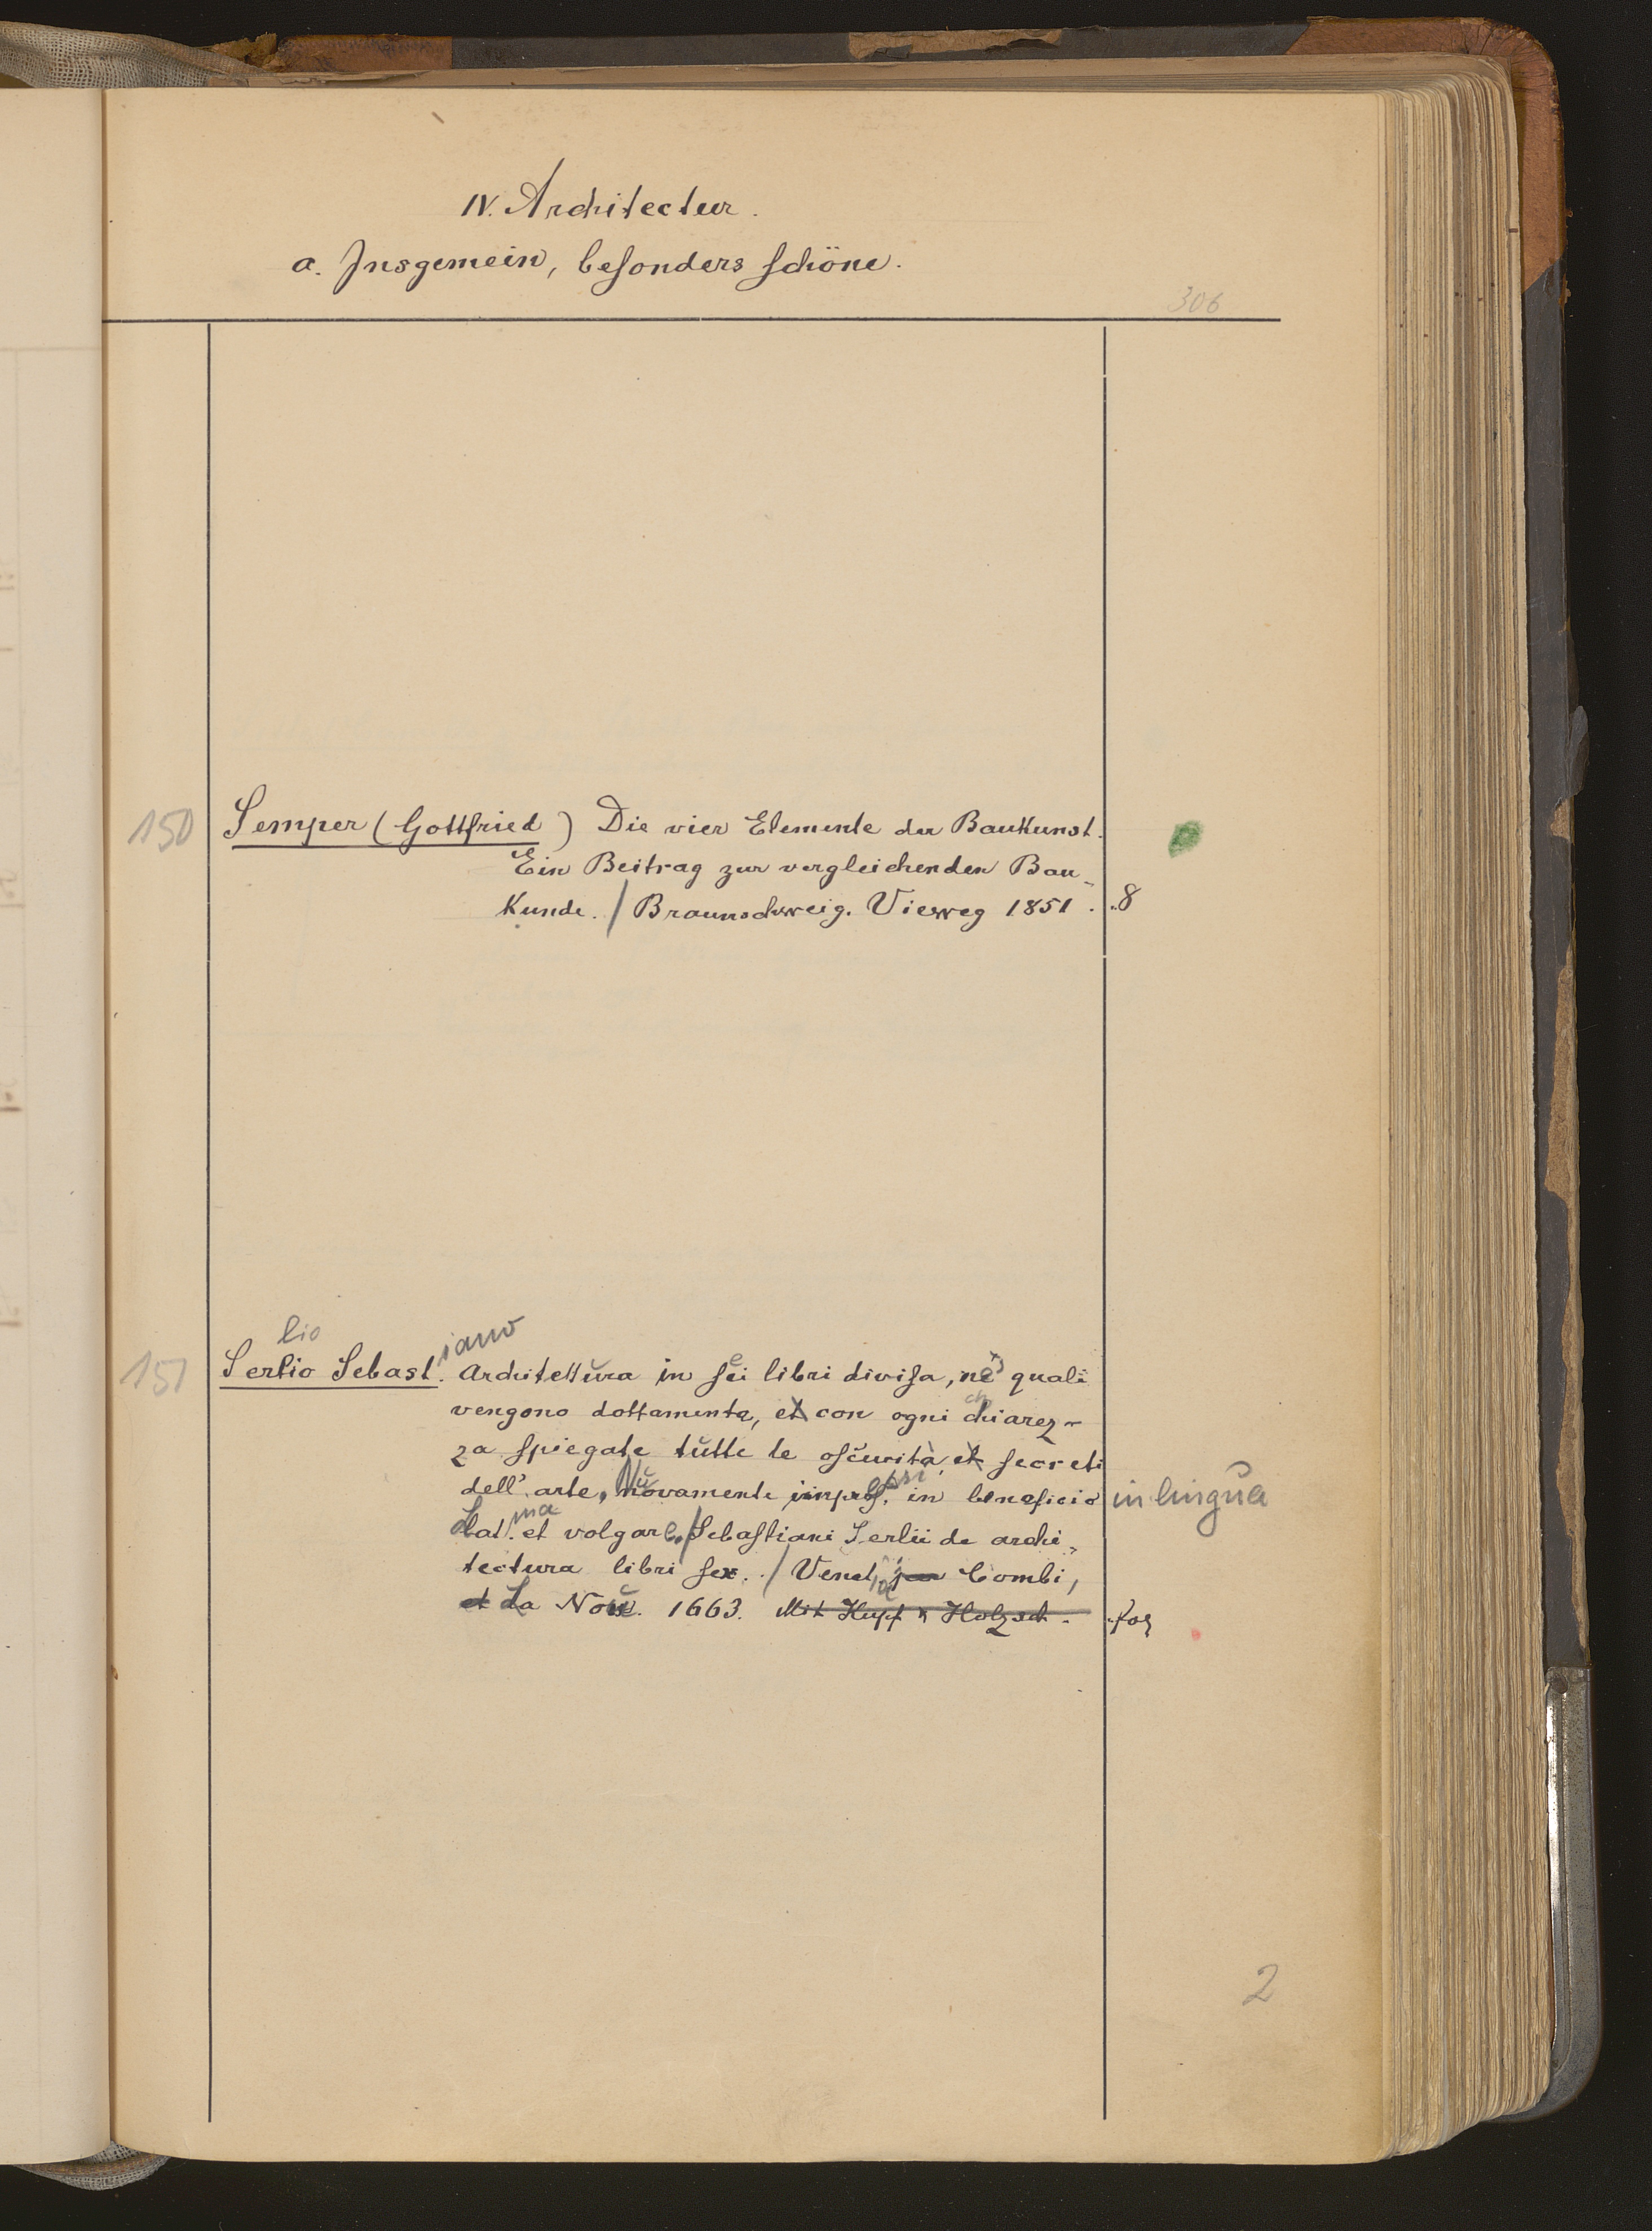 IV. Architectur.
a. Insgemein, besonders schöne.
306
150 Semper (Gottfried) Die vier Elemente der Baukunst.
Ein Beitrag zur vergleichenden Bau-
kunde. / Braunschweig. Vieweg 1851. 8
lio iano
151 Serlio Sebast. Architettura in sei libri divisa, ne' quali
vengono dottamente, et con ogni chiarez-
za spiegate tutte le oscurità, et secreti
dell' arte, Novamente impress. in beneficio in lingua
Lat. et volgare. / Sebastiani Serlii de archi-
tectura libri sex. / Venet, per Combi,
et La Nou. 1663. Mit Kupf & Holzsch. fol
2